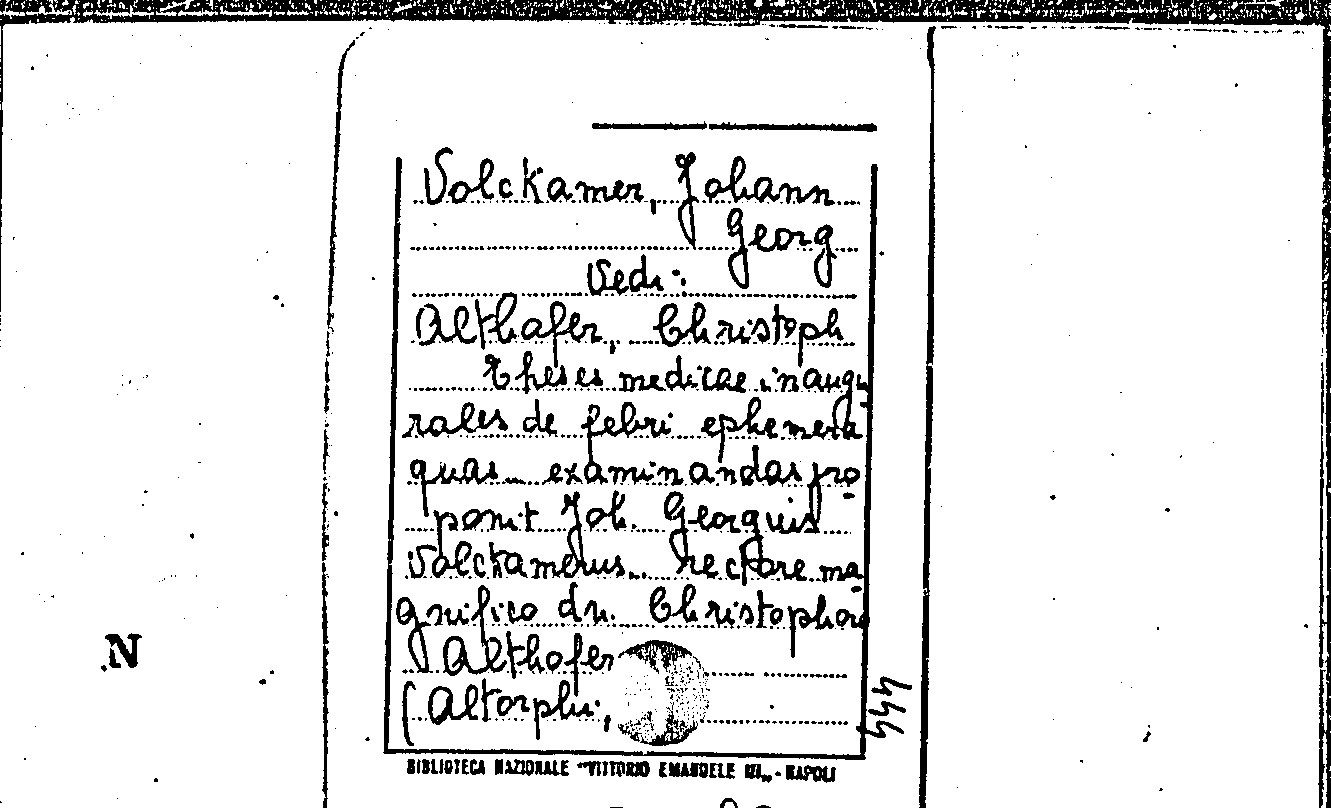 Volckamer, Johann
Georg
Vedi:
Althofer, Christoph
Theses medicae inaugu
rales de febri ephemera
quas examinandas pro
ponit Joh. Georguis
Volckamerus rectore ma
gnifico dn. Christophoro
Althofer
(Altorphi,
444
N
BIBLIOTECA NAZIONALE "VITTORIO EMANUELE III„ - NAPOLI